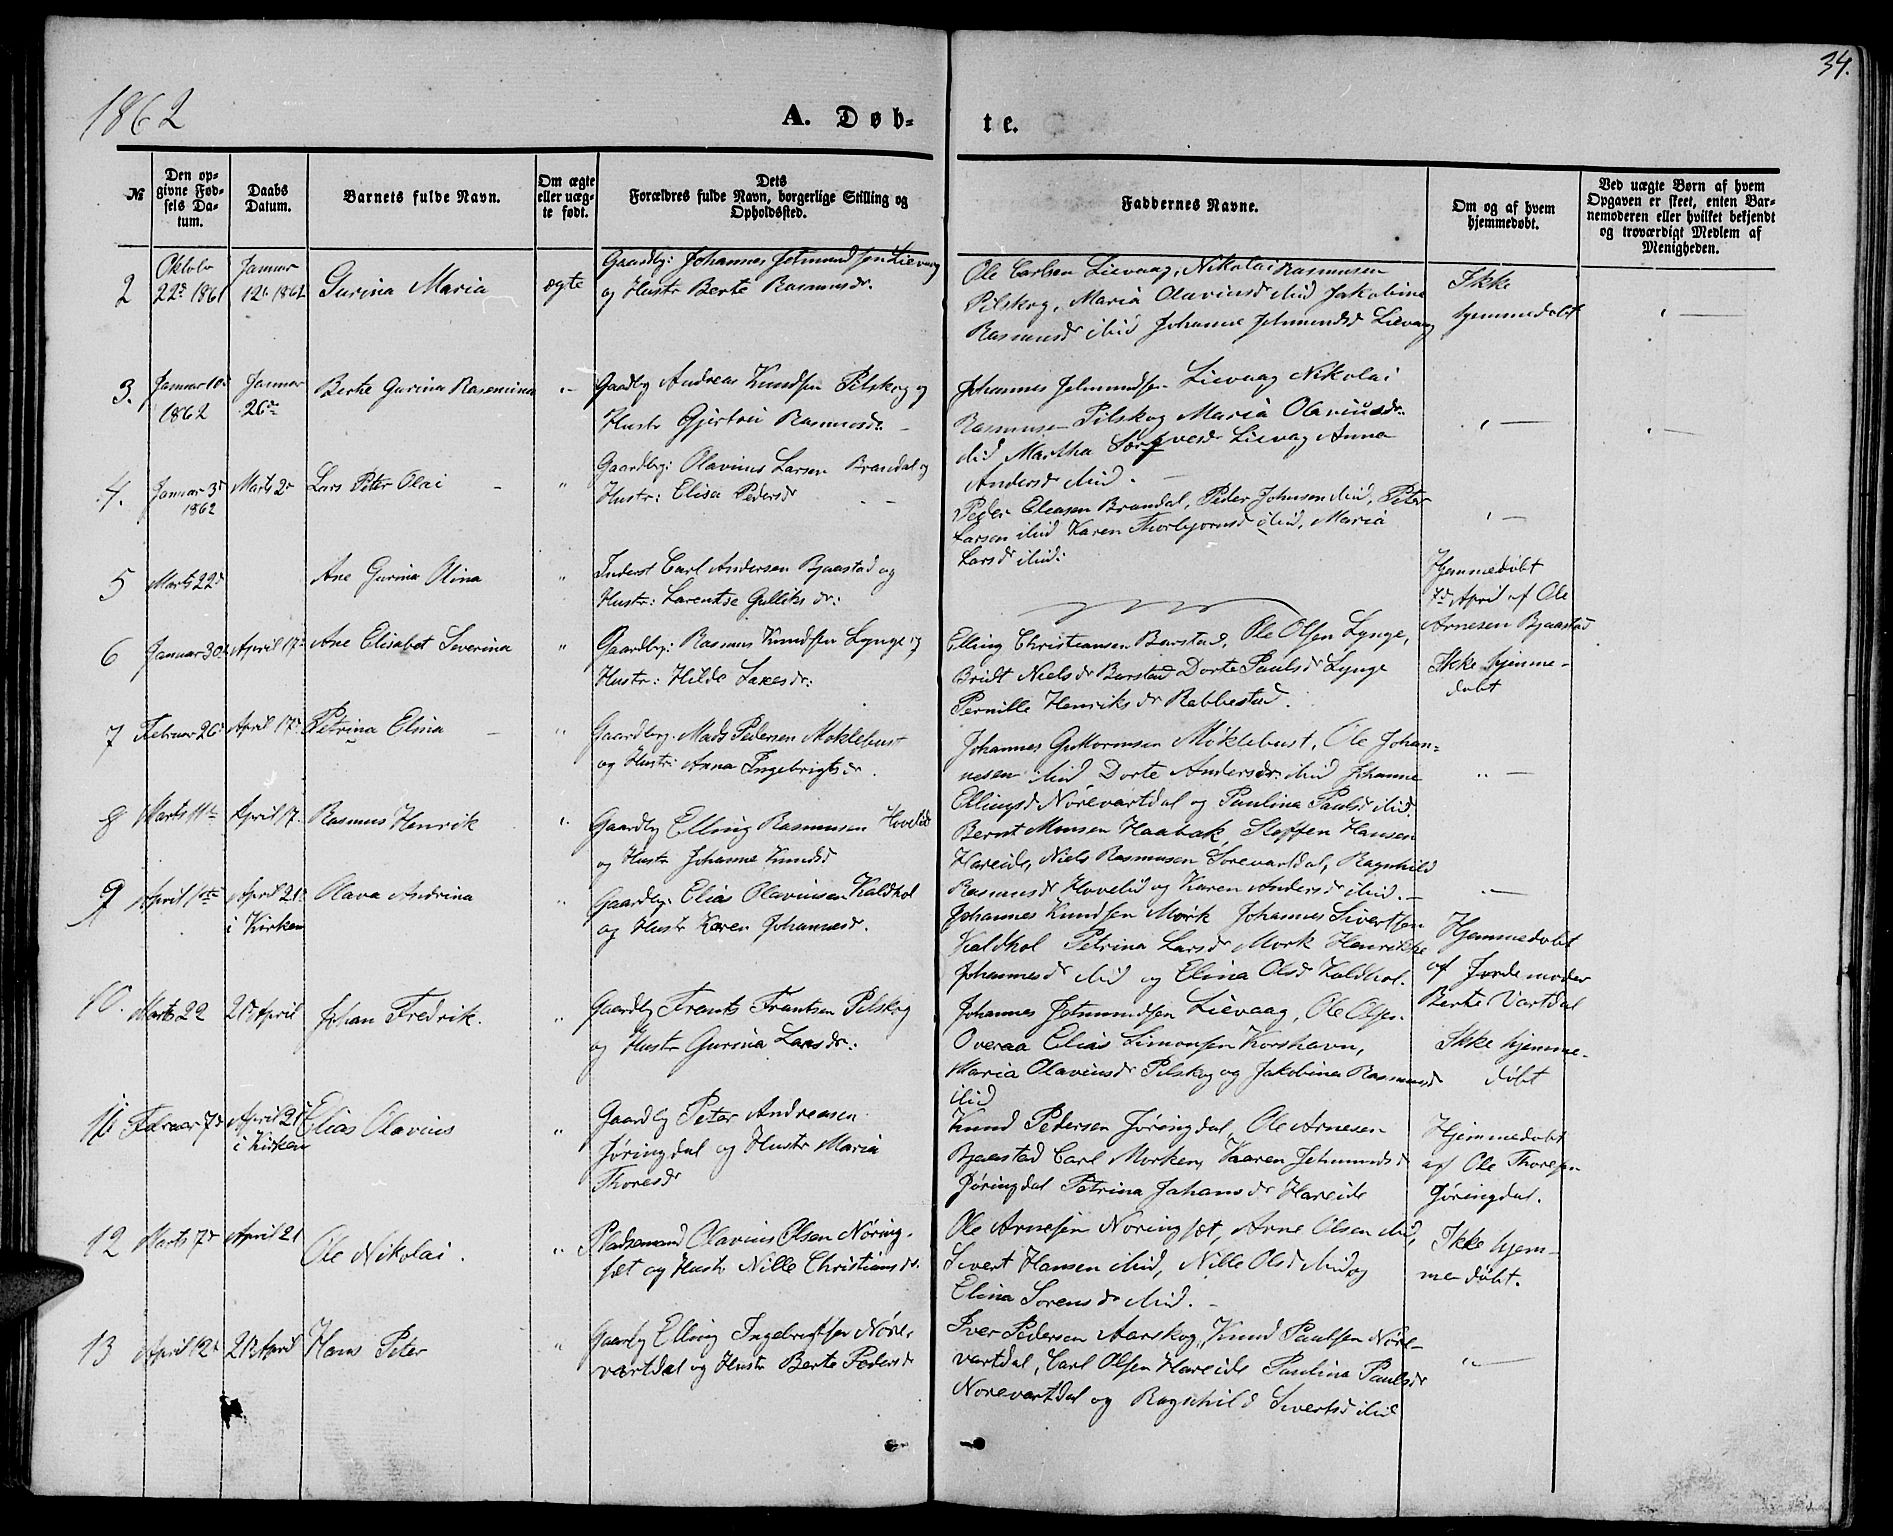 34.
1862
A. Døb-
te.
№
Den op-
givne Fød-
sels Da-
tum.
Daabs
Datum.
Barnets fulde Navn.
Om ægte
eller uæg-
te født.
Dets
Forældres fulde Navn, borgerlige Stilling og
Opholdssted.
Faddernes Navne.
Om og af hvem
hjemmedøbt.
Ved uægte Børn af hvem
Opgaven er skeet, enten Bar-
nemoderen eller hvilket bekjendt
og troværdigt Medlem af
Menigheden.
2
22d 1861
Januar
12. 1862
Gurina Maria
ægte
Gaardbr: Johannes Jetmundsen Lievaag
og Hustr Berte Rasmusdr.
Ole Carlsen Lievaag, Nikolai Rasmusen
Pilskog, Maria Olaviusd ibid Jakobine
Rasmusdr ibid Johanne Jetmundsd Lievaag
Ikke
hjemmedøbt
3.
Januar 10d
1862
Januar
26d
Berte Gurina Rasmina
Gaardbr Andreas Knudsen Pilskog og
Hustr Gjertrei Rasmusdr.
Johannes Jetmundsen Lievaag Nikolai
Rasmusen Pilskog Maria Olaviusdr.
ibid Martha Lievag Anna
Andersdr ibid.
4.
Januar 3d
1862
Marts 2d
Lars Peter Olai
Gaardbr: Olavius Larsen Brandal og
Hustr: Elisa Pedersdr
Peder Eliasen Brandal, Peder Johnsen ibid, Peter
Larsen ibid Karen Thorbjornsd ibid, Maria
Larsdr ibid.
5
Marts 22d
Ane Gurina Olina
Inderst Carl Andersen Bjaastad og
Hustr: Larentse Gulliksdr:
Hjemmedøbt
7d April af Ole
Arnesen Bjaastad
6
Januar 30d
April 17d
Ane Elisabet Severina
Gaardbr: Rasmus Knudsen Lynge og
Hustr: Hilde Larsdr:
Elling Christiansen Barstad, Ole Olsen Lynge,
Bridt Nielsdr Barstad Dorte Paulsdr Lynge
Pernille Henriksdr Rabbestad.
Ikke hjemme-
døbt
7
Februar 26d
April 17d
Petrina Elina
Gaardbr. Mads Pedersen Møklebust
og Hustr: Anna Ingebrigtsdr.
Johannes Guttormsen Møklebust, Ole Johan-
nesen ibid Dorte Andersdr: ibid Johanne
Ellingsd Nørevartdal og Paulina Paulsd ibid.
8
Marts 11te
April 17.
Rasmus Henrik
Gaardbr Elling Rasmusen Hovelid
og Hustr Johanne Knudsd
Bernt Monsen Haabak Steffen Hansen
Hareide, Niels Rasmusen Sørevartdal, Ragnhild
Rasmusdr Hovelid og Karen Andersdr ibid.
9
April 1ste
April 21d
i Kirken
Olava Andrina
Gaardbr. Elias Olaviusen Kaldhol
og Hustr Karen Johannesdr.
Johannes Knudsen Mork Johannes Sivertsen
Kaldhol Petrina Larsdr Mork Henrikke
Johannesdr ibid og Elina Olsd Kaldhol.
Hjemmedøbt
af Jordemoder
Berte Vartdal
10.
Marts 22
21d April
Johan Fredrik.
Gaardbr Frants Frantsen Pilskog
og Hustr Gurina Larsdr:
Johannes Jetmundsen Lievaag, Ole Olsen
Overaa Elias Simonsen Korshavn,
Maria Olaviusdr Pilskog og Jakobina Rasmusd
ibid
Ikke hjemme-
døbt
11
Februar 7d
April 21d
i Kirken
Elias Olavius
Gaardbr Peter Andreasen
Jøringdal og Hustr Maria
Thoresdr
Knud Pedersen Jøringdal, Ole Arnesen
Bjaastad Carl Morken, Karen Jetmundsdr
Jøringdal Petrina Johansdr Hareide
Hjemmedøbt
af Ole Thoresen
Jøringdal.
12
Marts 7d
April 21
Ole Nikolai.
Pladsemand Olavius Olsen Nøring-
set og Hustr Nille Christiansdr.
Ole Arnesen Noringset, Arne Olsen ibid,
Sivert Hansen ibid, Nille Olsd ibid og
Elina Sorensdr ibid.
Ikke hjem-
medøbt.
13
April 12d
21d April
Hans Peter
Gaardbr Elling Ingebrigtsen Nøre-
vartdal og Hustr Berte Pedersdr
Iver Pedersen Aarskog, Knud Paulsen Nøre-
vartdal, Carl Olsen Hareide Paulina Paulsdr
Nørevartdal og Ragnhild Sivertsd ibid